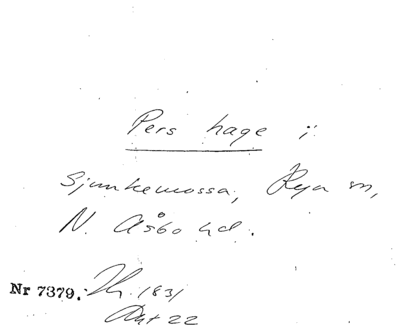 Pers hage i
Sjunkemossa, Rya sn,
N. Åsbo hd.
Nr 7379. 1831
22